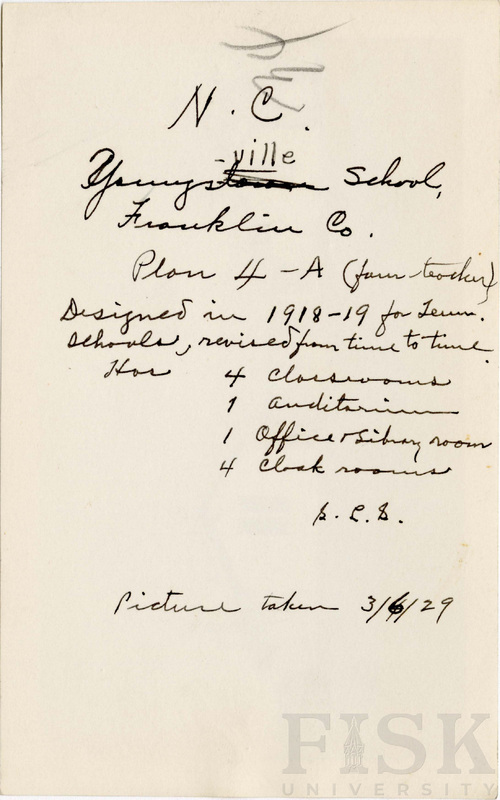 N. C.
-ville
Youngstown School,
Franklin Co.
Plan 4-A (four teacher)
Designed in 1918-19 for Tenn.
schools, revised from time to time.
Has 4 classrooms
1 auditorium
1 Office & Library room
4 Cloak rooms
S. L. S.
Picture taken 3/6/29
FISK
UNIVERSITY